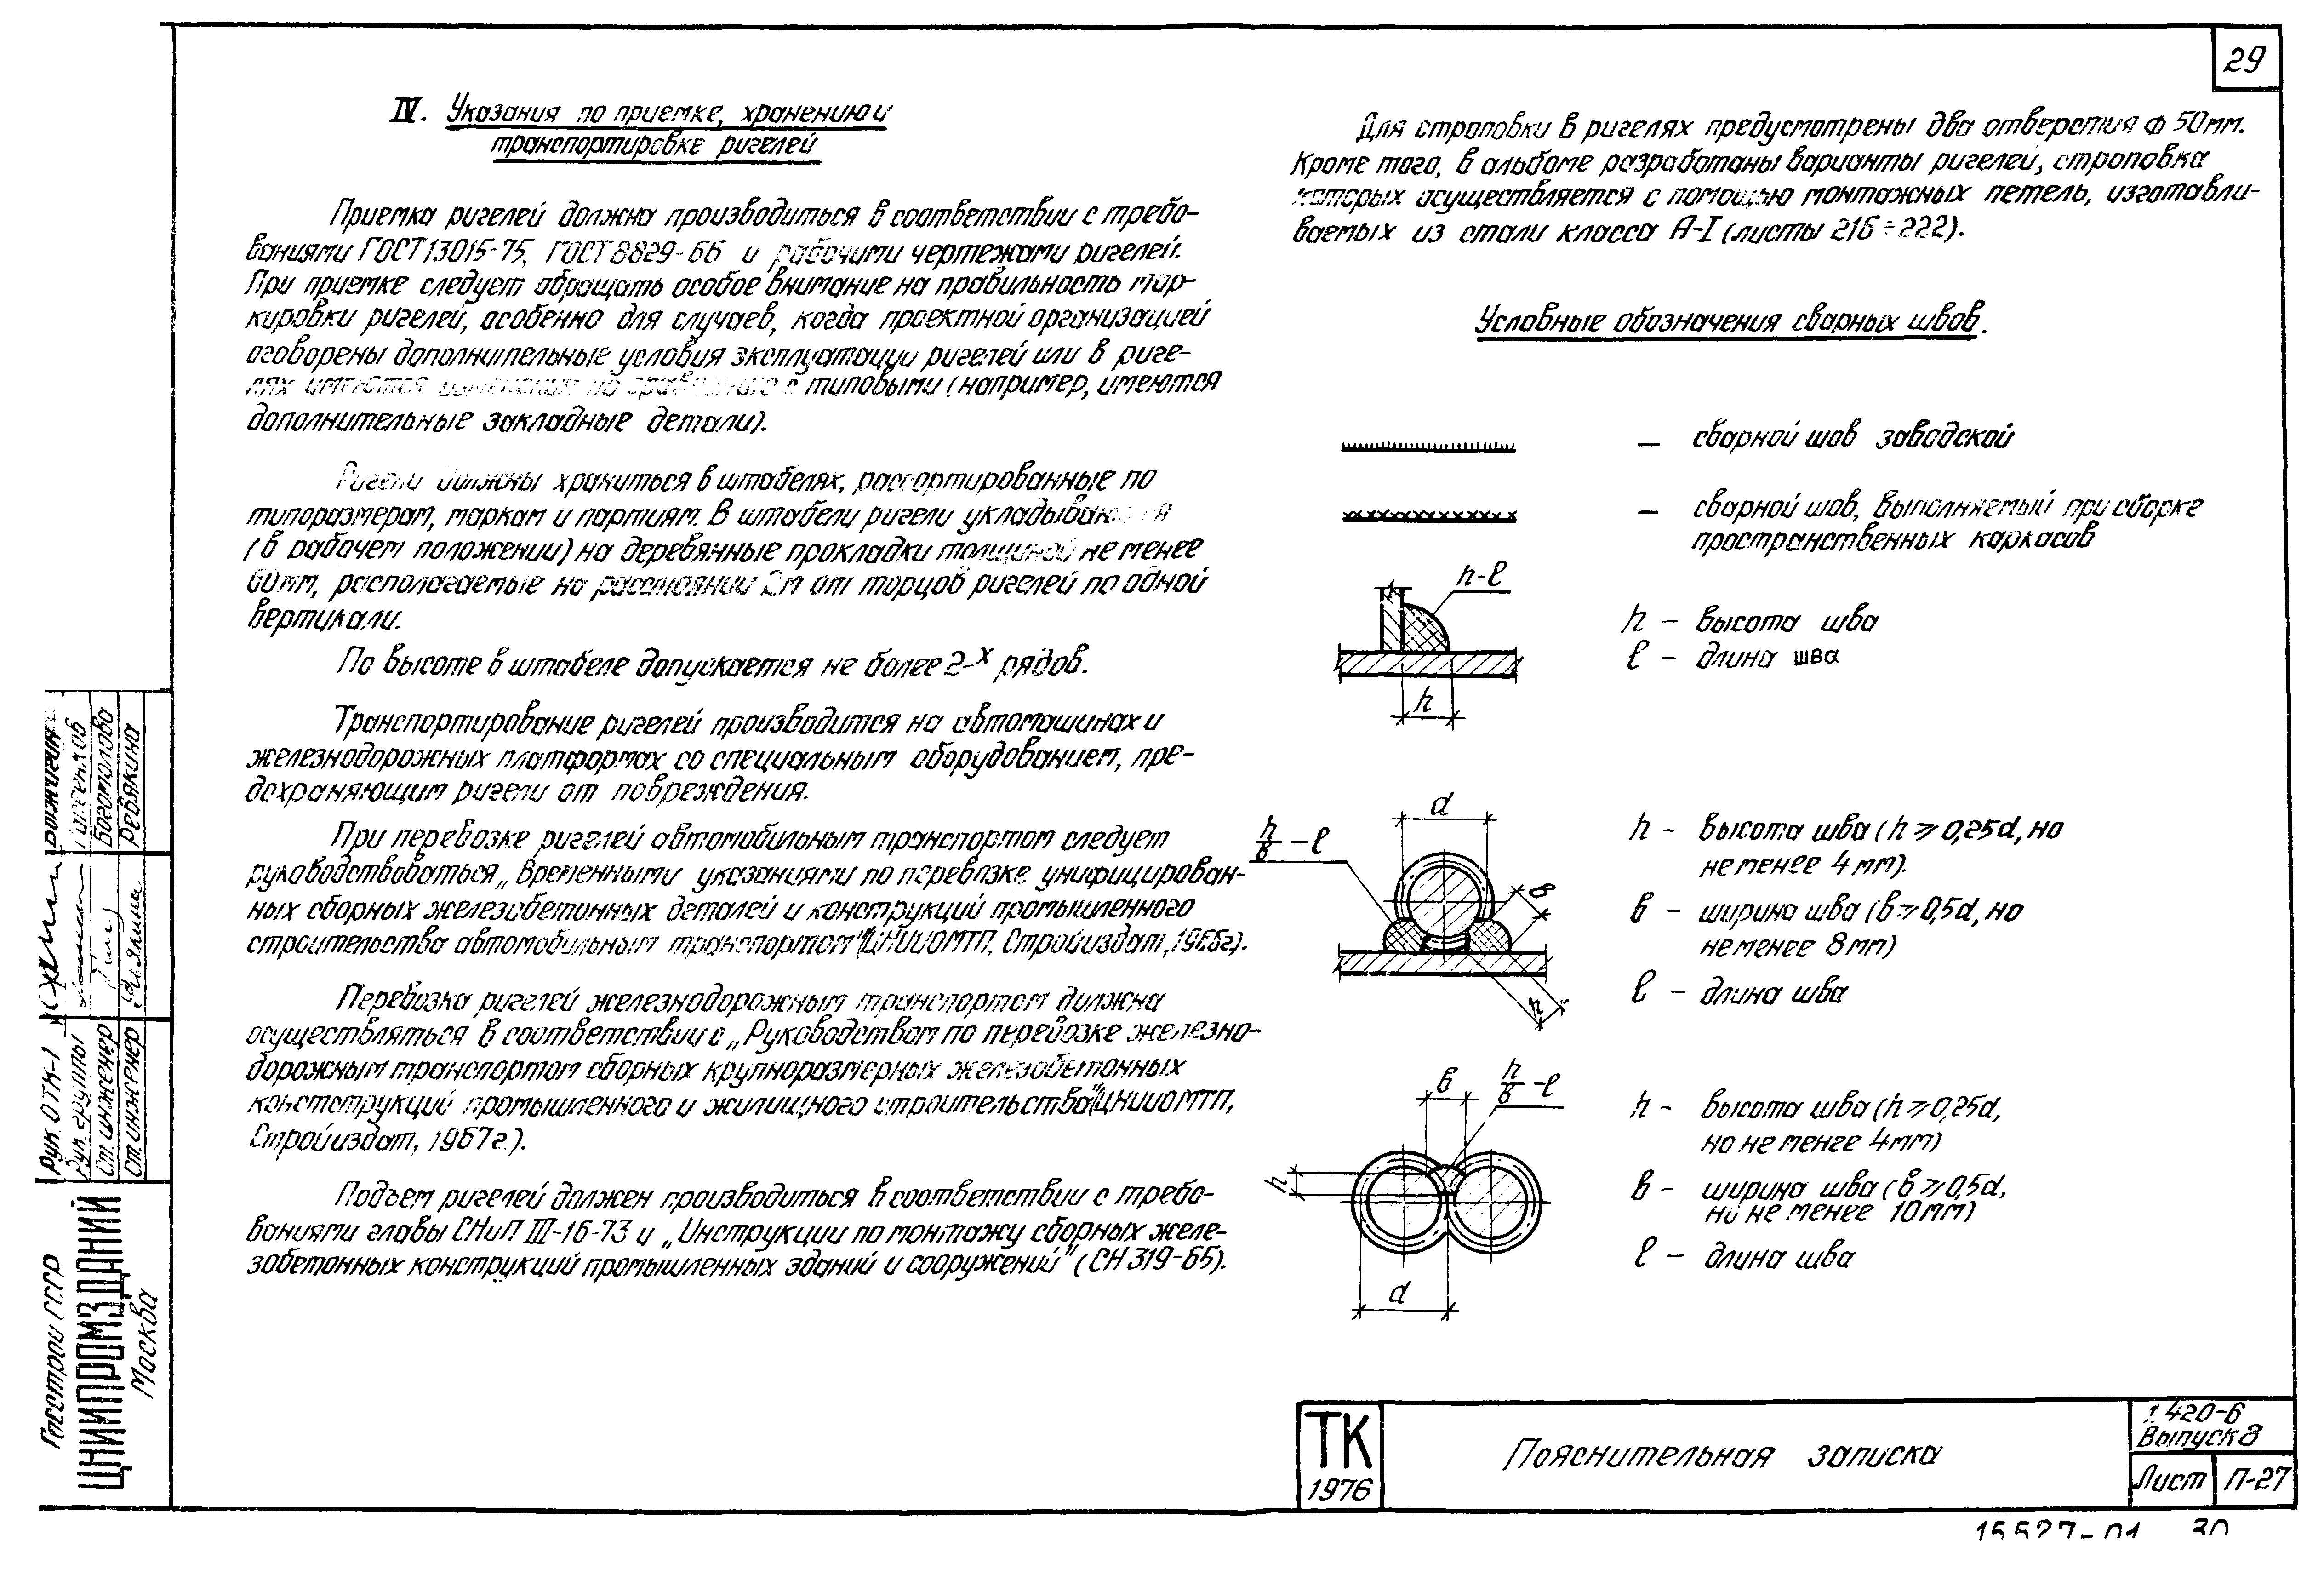 29
IV. Указания по приемке, хранению и
транспортировке ригелей
Приемка ригелей должна производиться в соответствии с требо-
ваниями ГОСТ 13015-75, ГОСТ 8829-66 и рабочими чертежами ригелей.
При приемке следует обращать особое внимание на правильность мар-
кировки ригелей, особенно для случаев, когда проектной организацией
оговорены дополнительные условия эксплуатации ригелей или в риге-
лях имеются изменения по сравнению с типовыми (например, имеются
дополнительные закладные детали).
Ригели должны храниться в штабелях, рассортированные по
типоразмерам, маркам и партиям. В штабели ригели укладываются
(в рабочем положении) на деревянные прокладки толщиной не менее
60мм, располагаемые на расстоянии 2м от торцов ригелей по одной
вертикали.
По высоте в штабеле допускается не более 2-х рядов.
Транспортирование ригелей производится на автомашинах и
железнодорожных платформах со специальным оборудованием, пре-
дохраняющим ригели от повреждения.
При перевозке ригелей автомобильным транспортом следует
руководствоваться „Временными указаниями по перевозке унифицирован-
ных сборных железобетонных деталей и конструкций промышленного
строительства автомобильным транспортом" (ЦНИИОМТП, Стройиздат, 1966г).
Перевозка ригелей железнодорожным транспортом должна
осуществляться в соответствии с „Руководством по перевозке железно-
дорожным транспортом сборных крупноразмерных железобетонных
констструкций промышленного и жилищного строительства" (ЦНИИОМТП,
Стройиздат, 1967г.).
Подъем ригелей должен производиться в соответствии с требо-
ваниями главы СНиП III-16-73 и „Инструкции по монтажу сборных желе-
зобетонных конструкций промышленных зданий и сооружений" (СН 319-65).
Для строповки в ригелях предусмотрены два отверстия Ф 50мм.
Кроме того, в альбоме разработаны варианты ригелей, строповка
которых осуществляется с помощью монтажных петель, изготавли-
ваемых из стали класса А-I (листы 216÷222).
Условные обозначения сварных швов.
— сварной шов заводской
— сварной шов, выполняемый при сборке
пространственных каркасов
h-l
h — высота шва
l — длина шва
h
d
h/в - l
в
h
h - высота шва (h ⩾ 0,25d, но
не менее 4 мм).
в - ширина шва (в ⩾ 0,5d, но
не менее 8мм)
l - длина шва
в
h/в - l
h
d
h - высота шва (h ⩾ 0,25d,
но не менее 4мм)
в - ширина шва (в ⩾ 0,5d,
но не менее 10мм)
l — длина шва
ТК
1976
Пояснительная записка
1.420-6
Выпуск 8
Лист
П-27
15527-01 30
Госстрой СССР
ЦНИИПРОМЗДАНИЙ
Москва
Рук. ОТК-1
Рук. группы
Ст. инженер
Ст. инженер
Богомолова
Ревякина